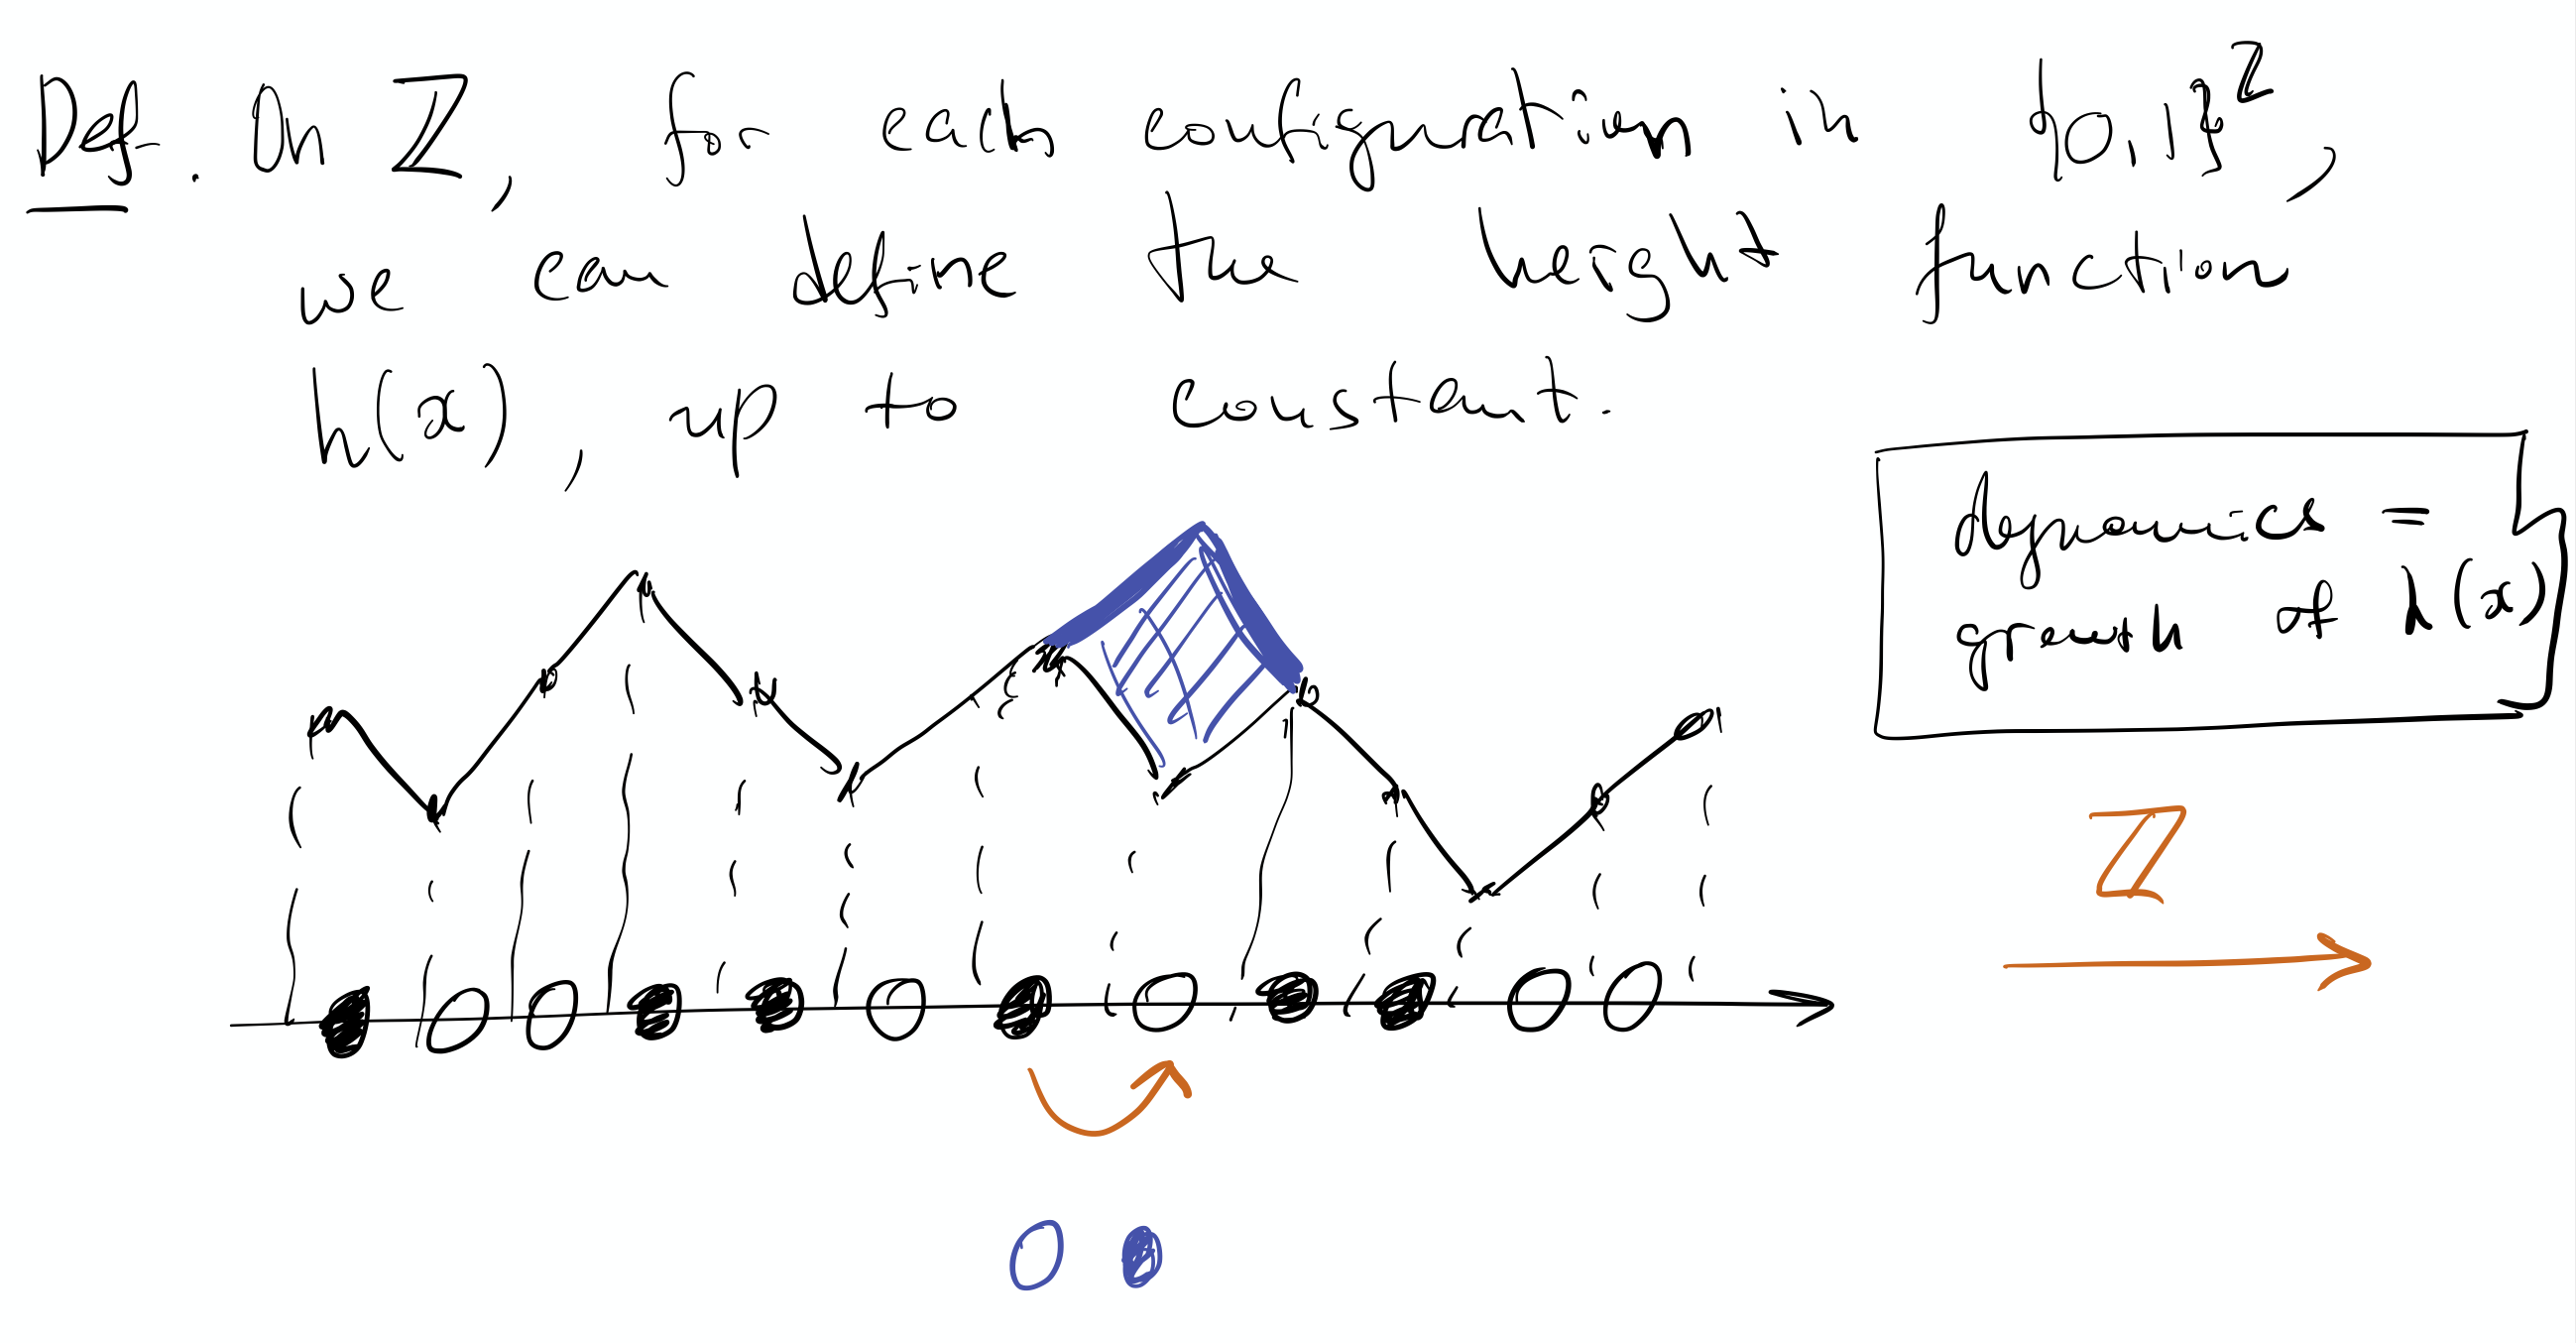 Def. On ℤ, for each configuration in {0,1}^ℤ,
we can define the height function
h(x), up to constant.
dynamics =
growth of h(x)
ℤ